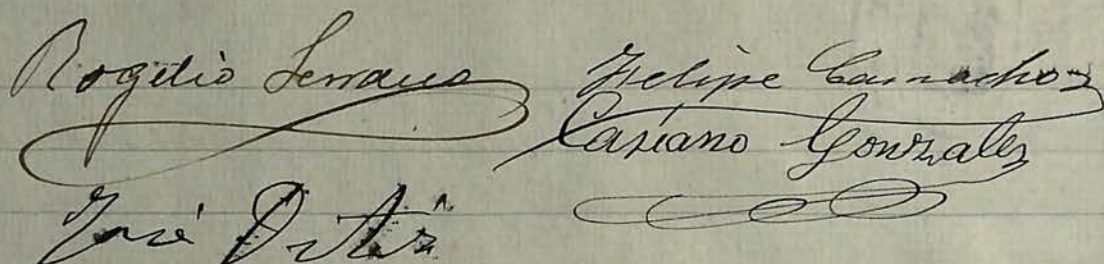 Rogelio Serrano
Felipe Camacho
Casiano Gonzalez
José Ortiz